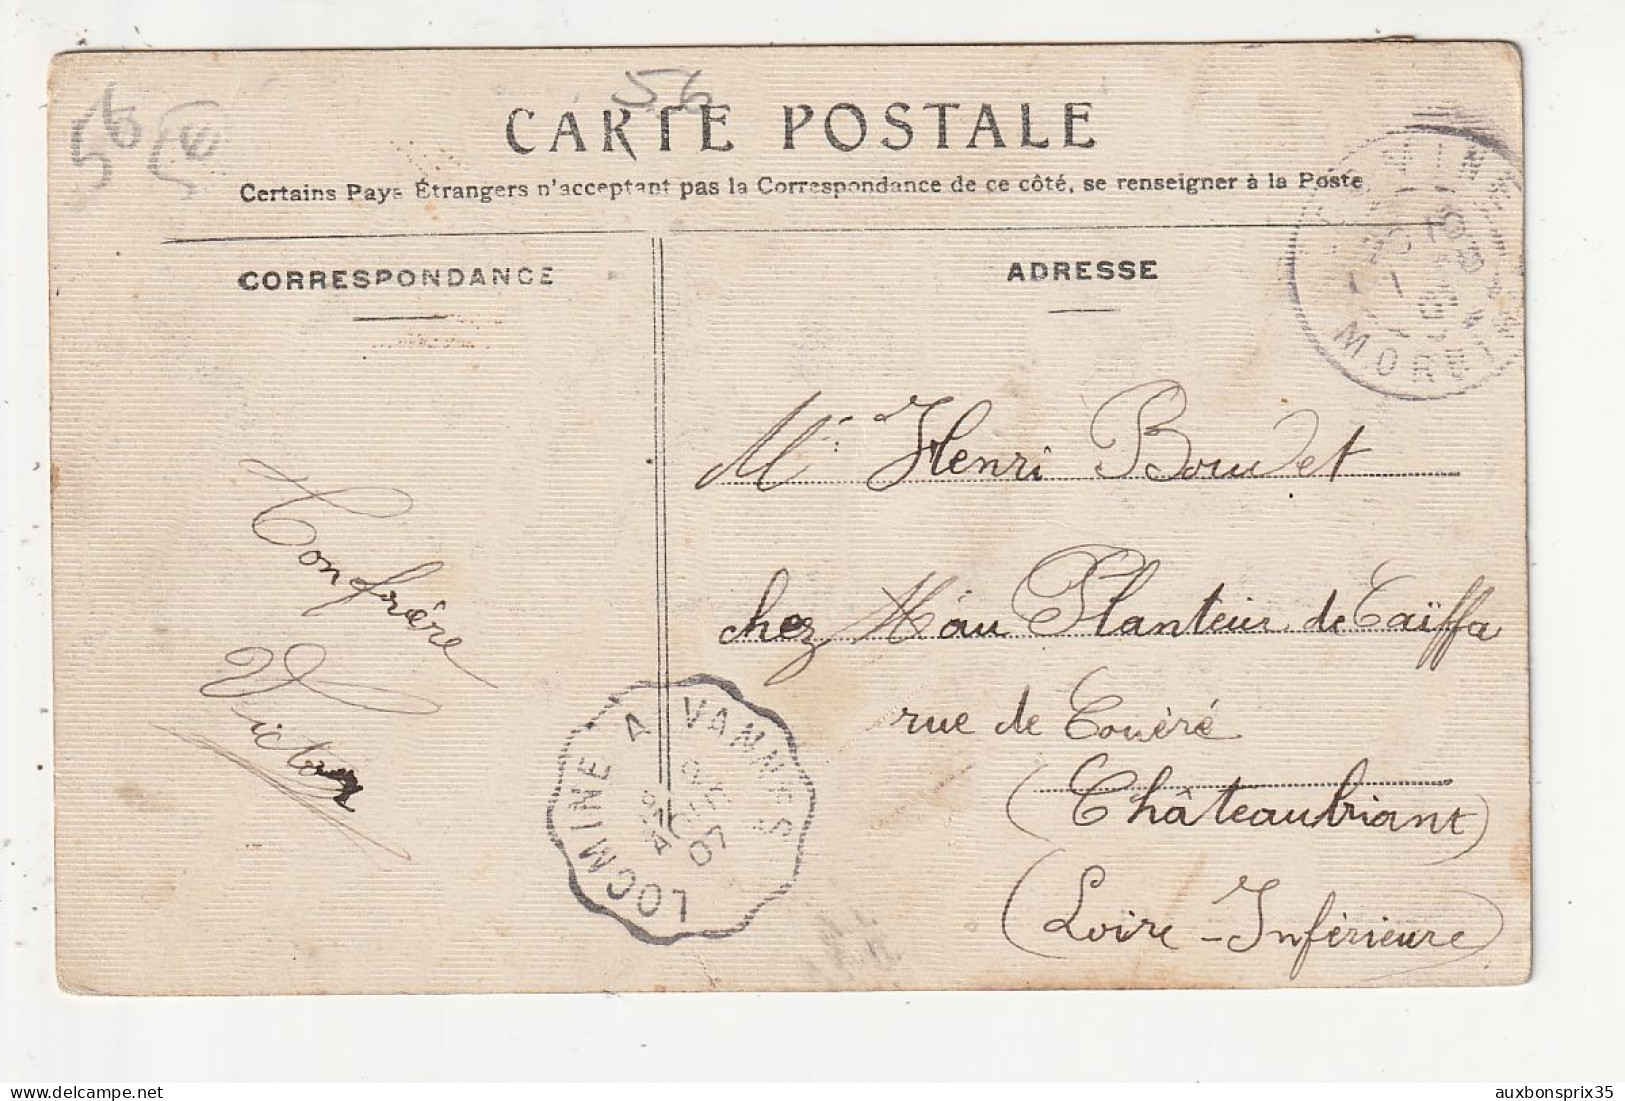 56
56
CARTE POSTALE
Certains Pays Étrangers n'acceptant pas la Correspondance de ce côté, se renseigner à la Poste
CORRESPONDANCE
ADRESSE
Mr Henri Boudet
chez Mr au Planteur de Caïffa
rue de Couéré
(Châteaubriant)
(Loire-Inférieure)
Ton frère
Victor
LOCMINE A VANNES
07
auxbonsprix35